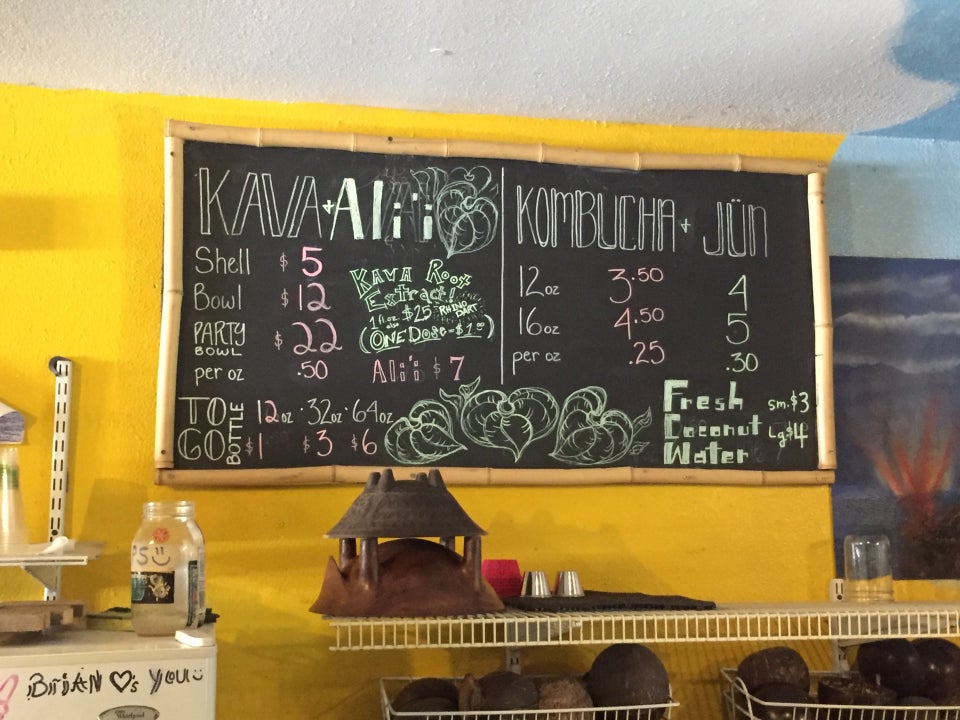 KAVA + Ali'i
Shell $5
Bowl $12
PARTY BOWL $22
per oz .50
Kava Root
Extract!
1 fl.oz $25 RHINO DART
also
(ONE Dose = $1.00)
Ali'i $7
TO GO BOTTLE
12oz · 32oz · 64oz
$1 $3 $6
KOMBUCHA + JÜN
12oz 3.50 4
16oz 4.50 5
per oz .25 .30
Fresh
Coconut
Water
sm. $3
Lg $4
PS
BRIAN ♡'s YOU
Whirlpool